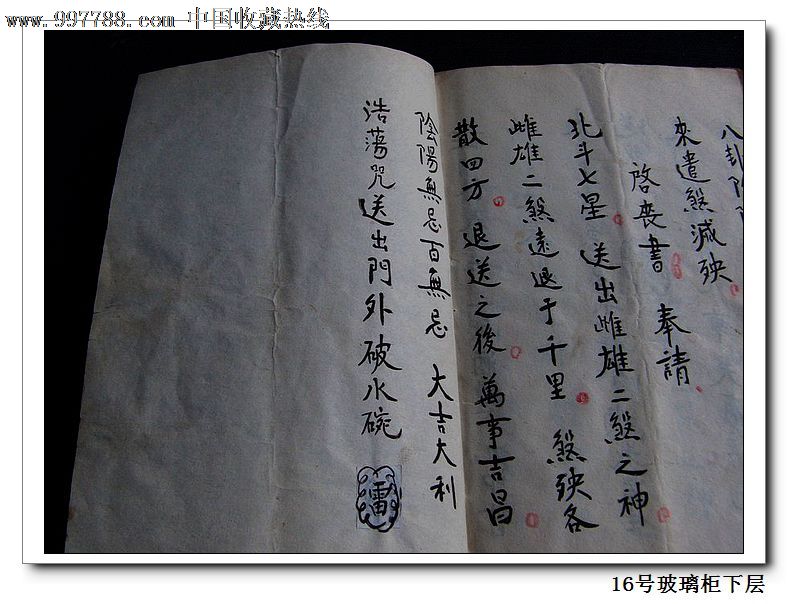 www.997788.com 中国收藏热线
八卦陰陽
來遣煞滅殃
啓喪書 奉請
北斗七星 送出雌雄二煞之神
雌雄二煞遠退于千里 煞殃各
散四方 退送之後 萬事吉昌
陰陽無忌百無忌 大吉大利
浩蕩咒送出門外破水碗
雷
16号玻璃柜下层